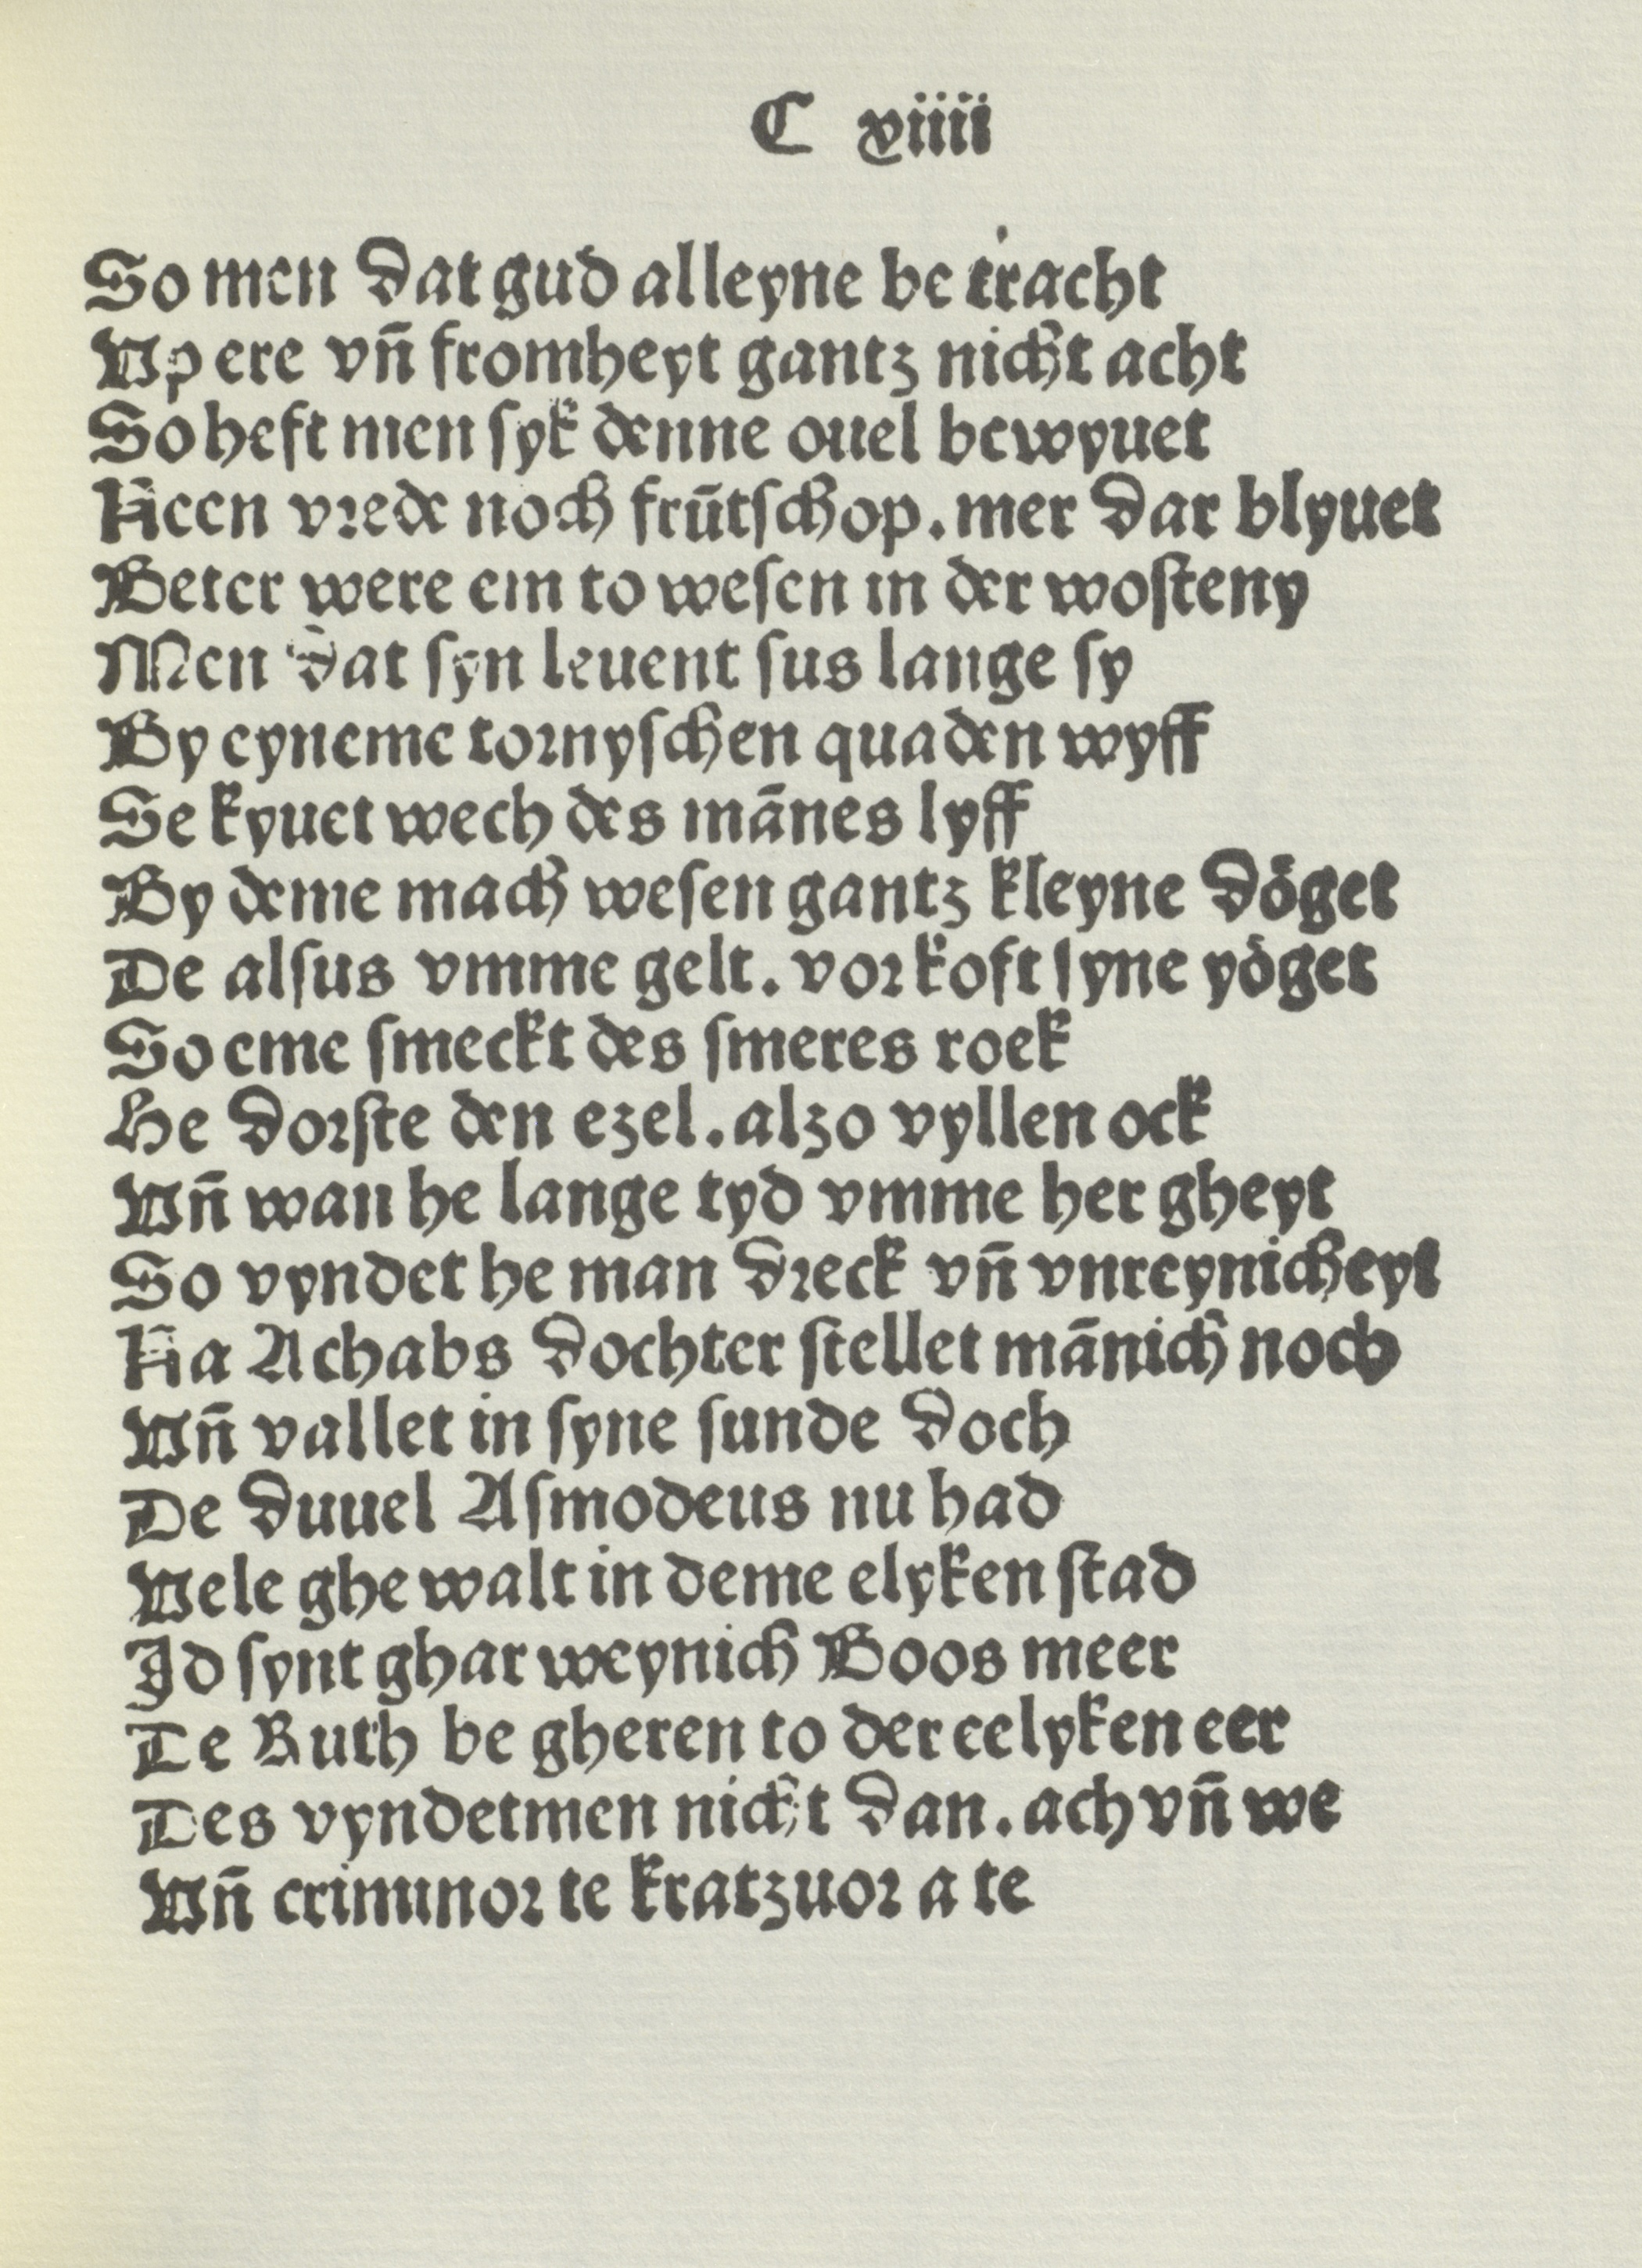 C xiiii
So men dat gud alleyne be tracht
Vp ere vn̄ fromheyt gantz nicht acht
So heft men ſyk denne ouel bewyuet
Keen vrede noch frūtſchop. mer dar blyuet
Beter were ein to weſen in der woſteny
Men dat ſyn leuent ſus lange ſy
By eyneme tornyſchen quaden wyff
Se kyuet wech des mānes lyff
By deme mach weſen gantz kleyne döget
De alſus vmme gelt. vorkoft ſyne yöget
So eme ſmeckt des ſmeres roek
He dorſte den ezel. alzo vyllen ock
Vn̄ wan he lange tyd vmme her gheyt
So vyndet he man dreck vn̄ vnreynicheyt
Na Achabs dochter ſtellet mānich noch
Vn̄ vallet in ſyne ſunde doch
De duuel Aſmodeus nu had
Vele ghe walt in deme elyken ſtad
Id ſynt ghar weynich Boos meer
De Ruth be gheren to der eelyken eer
Des vyndetmen nicht dan. ach vn̄ we
Vn̄ criminor te kratzuor a te